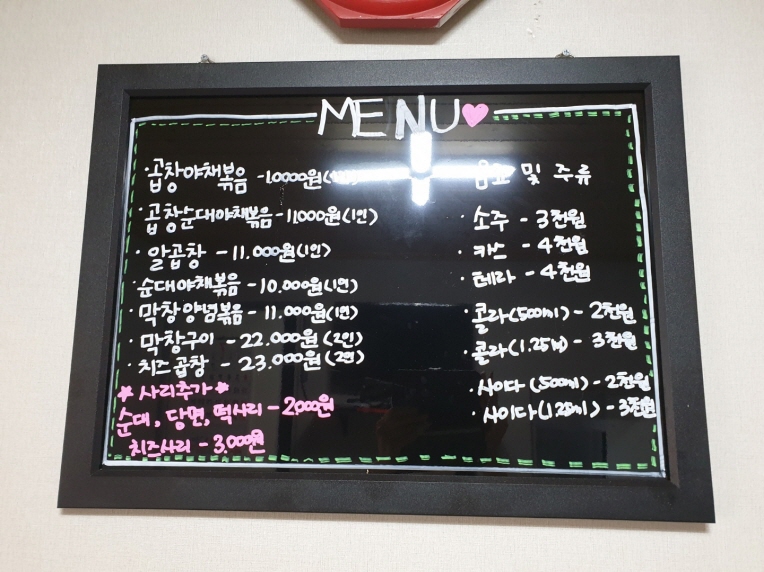 MENU
·곱창야채볶음 - 10.000원
·곱창순대야채볶음 - 11.000원(1인)
·알곱창 - 11.000원(1인)
·순대야채볶음 - 10.000원(1인)
·막창양념볶음 - 11.000원(1인)
·막창구이 - 22.000원(2인)
·치즈곱창 - 23.000원(2인)
*사리추가*
순대, 당면, 떡사리 - 2000원
치즈사리 - 3.000원
및 주류
·소주 - 3천원
·카스 - 4천원
·테라 - 4천원
·콜라(500ml) - 2천원
·콜라(1.25) - 3천원
·사이다(500ml) - 2천원
·사이다(1.25) - 3천원